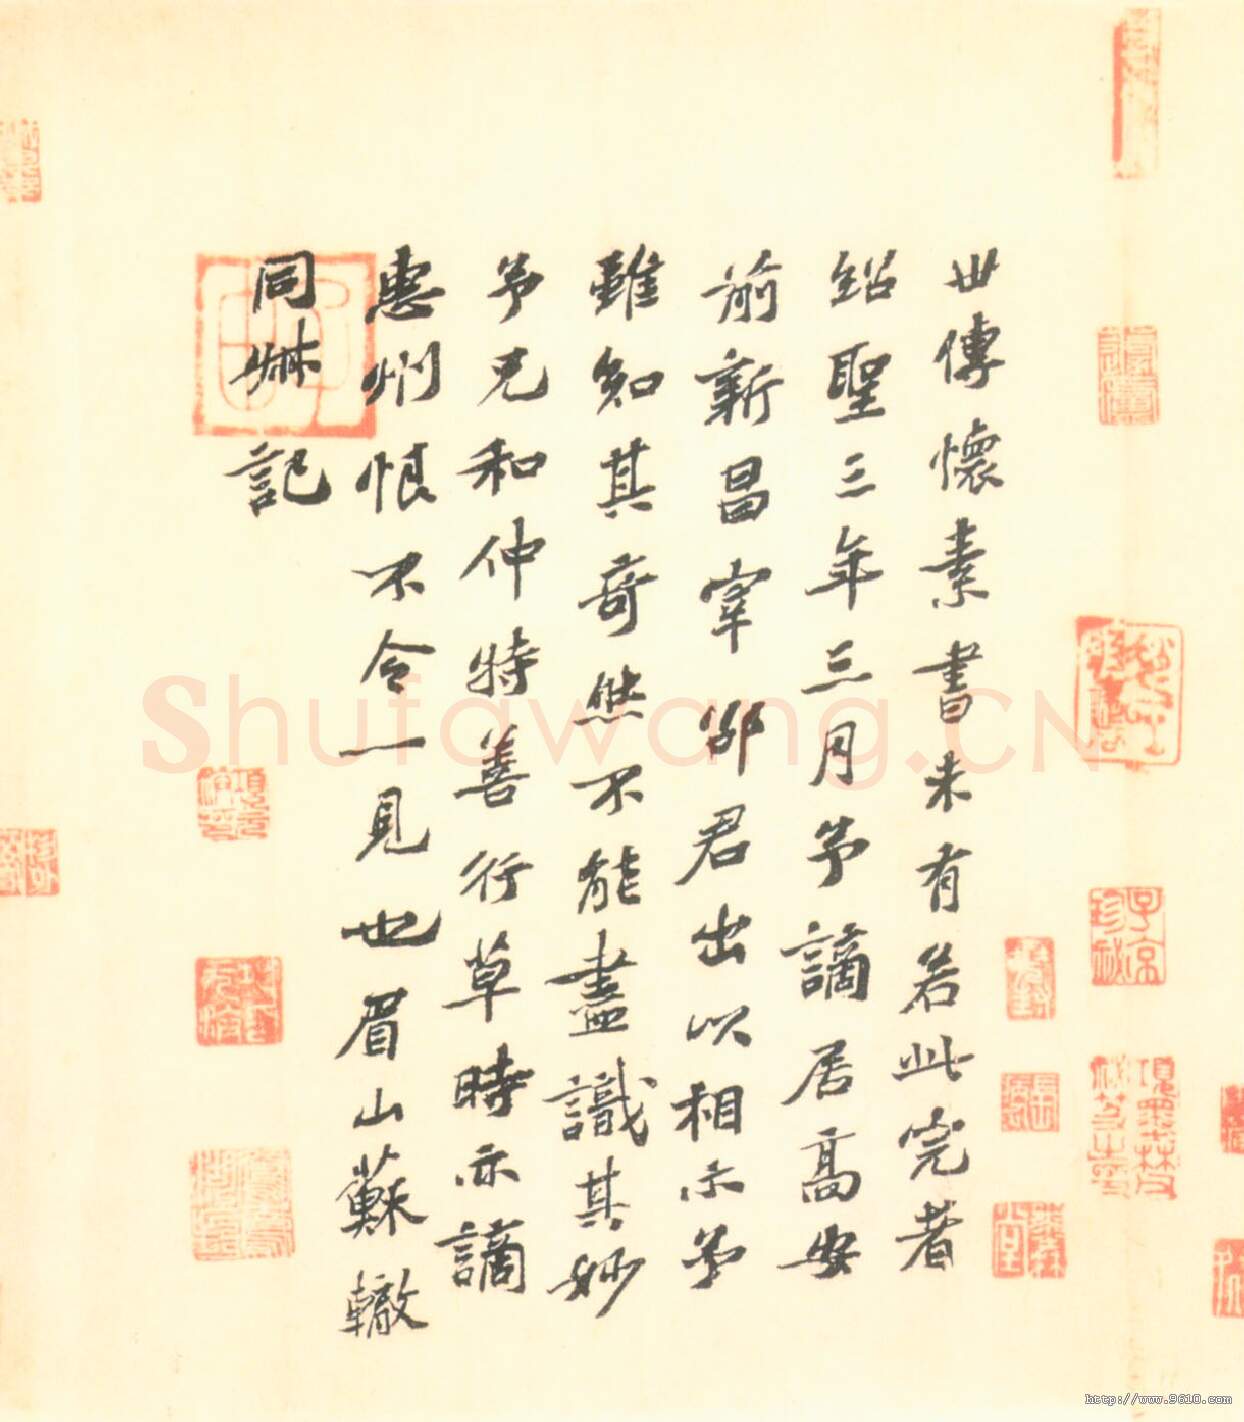 世傳懷素書未有若此完者
紹聖三年三月予謫居高安
前新昌宰邵君出以相示予
雖知其奇然不能盡識其妙
予兄和仲特善行草時亦謫
惠州恨不令一見也眉山蘇轍
同叔記
Shufawang.CN
子京珍祕
http://www.9610.com